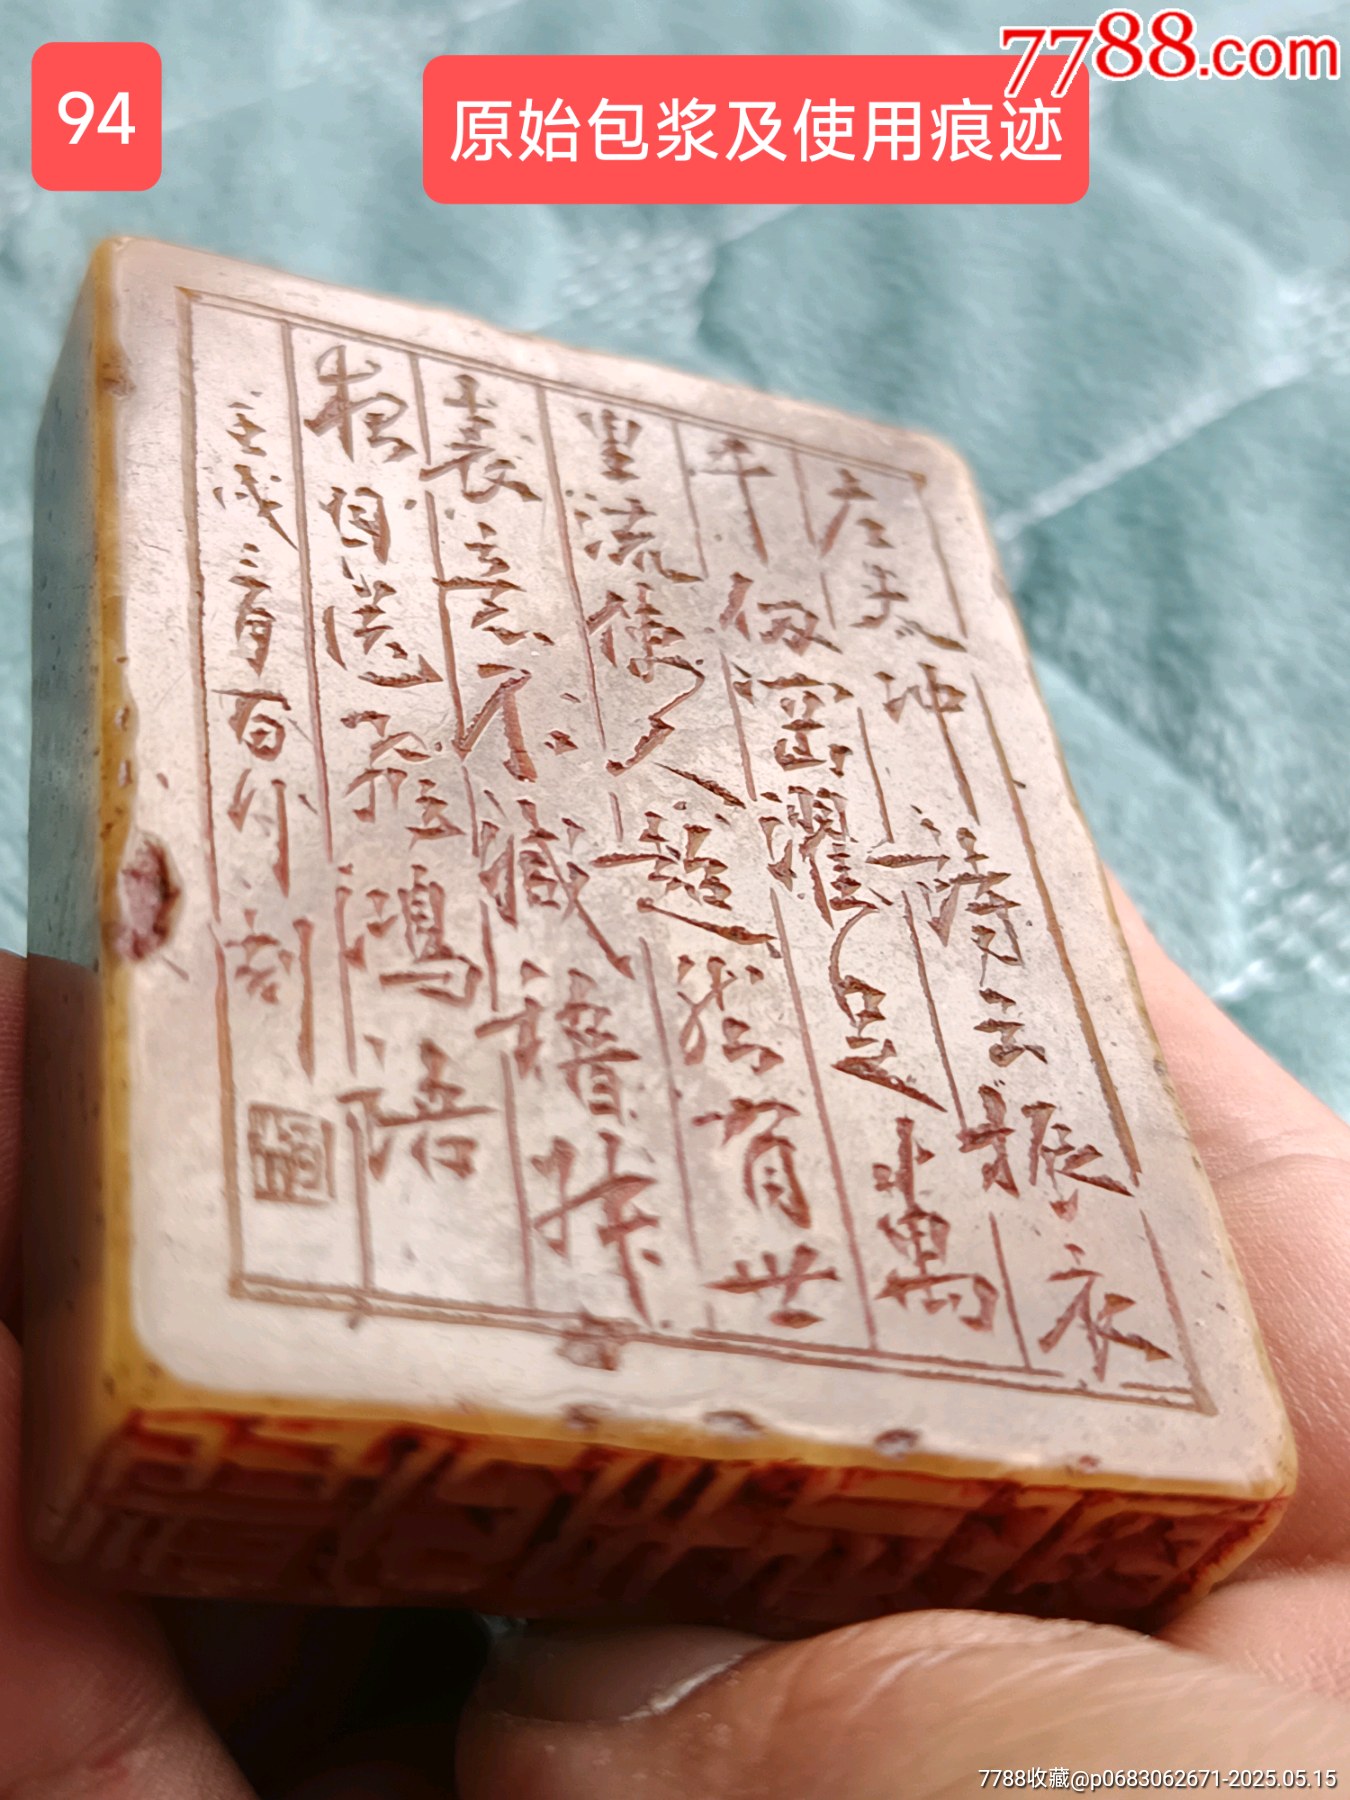 94
原始包浆及使用痕迹
7788.com
左太冲詩云振衣
千仞岡濯足萬
里流使人超然有世
表意不減嵇叔
夜目送飛鴻語
壬戌三月百川刻
7788收藏@p0683062671-2025.05.15